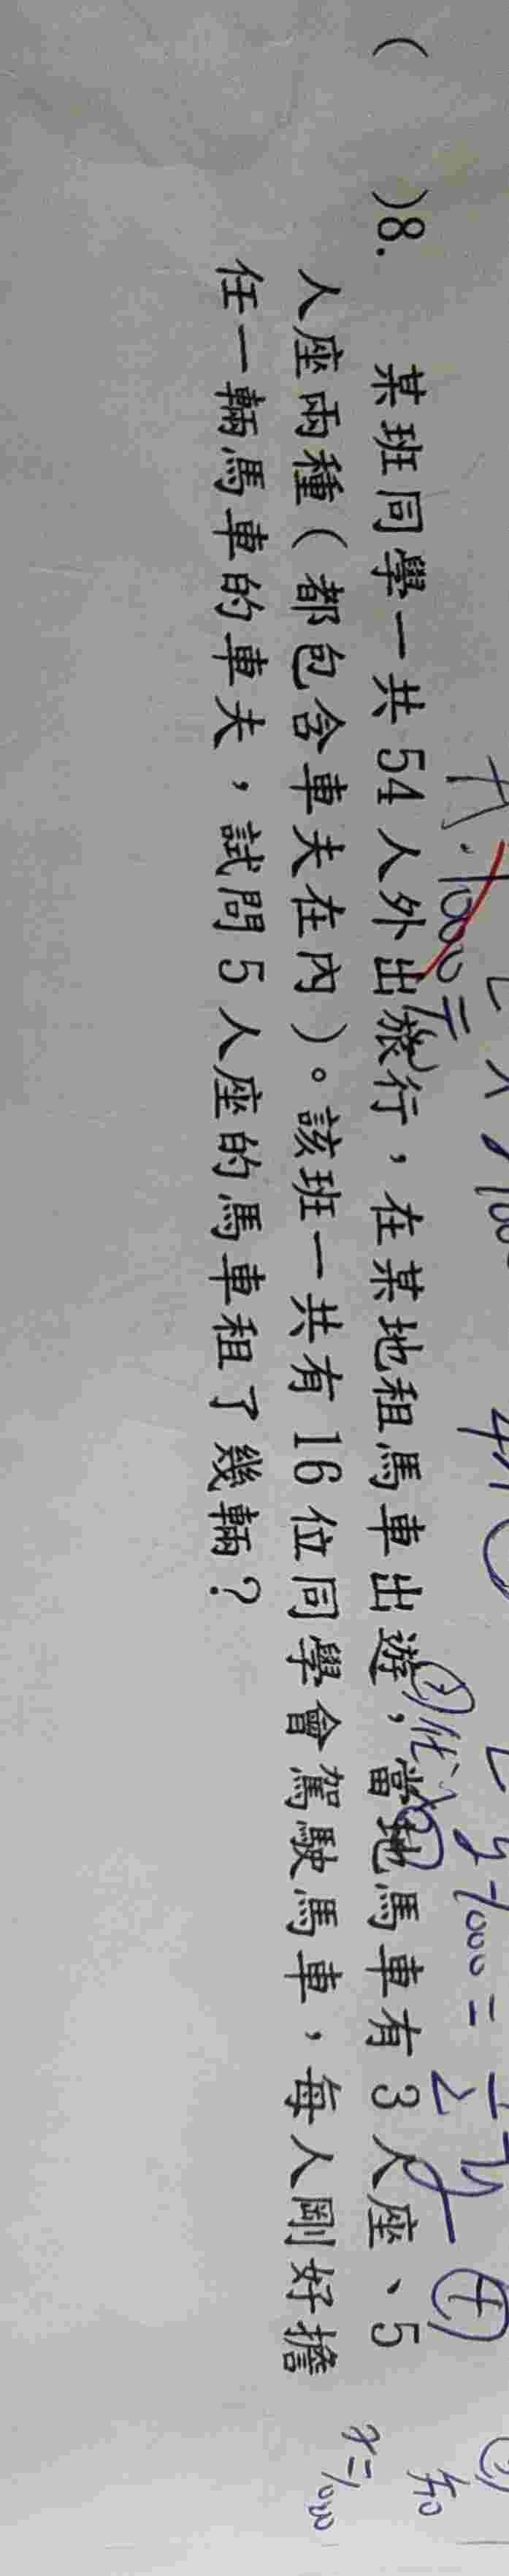 ( )8. 某班同學一共 54 人外出旅行，在某地租馬車出遊，當地馬車有 3 人座、5
人座兩種（都包含車夫在內）。該班一共有 16 位同學會駕駛馬車，每人剛好擔
任一輛馬車的車夫，試問 5 人座的馬車租了幾輛？
x=1000